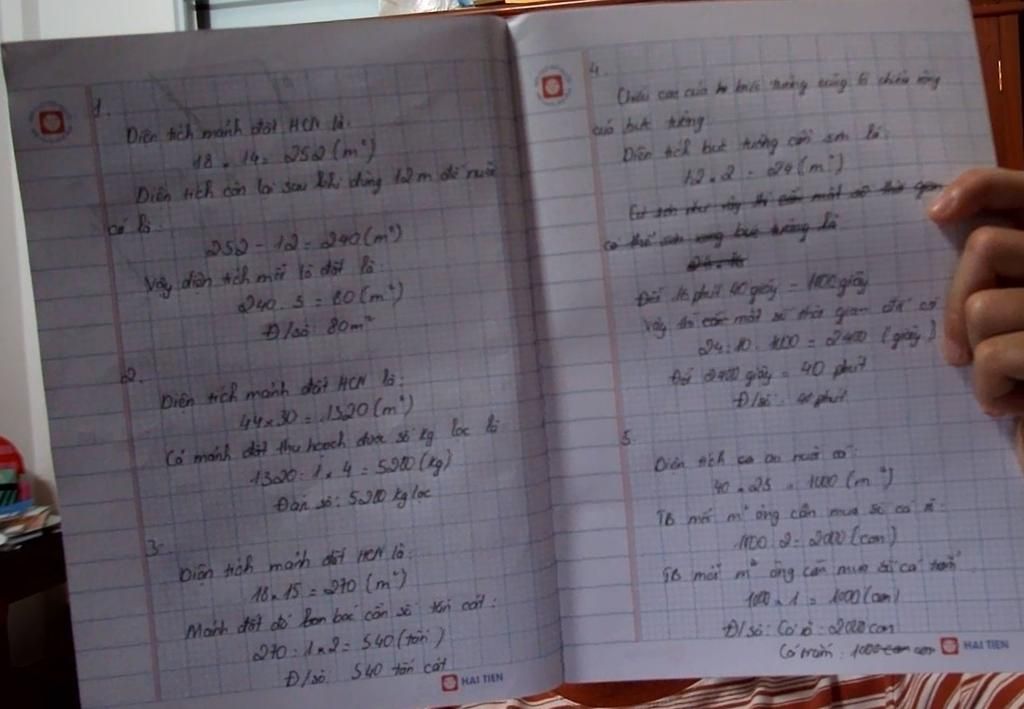 1.
Diện tích mảnh đất HCN là:
18 . 14 = 252 (m²)
Diện tích còn lại sau khi dùng 12m để nuôi
cá là:
252 - 12 = 240 (m²)
Vậy diện tích mỗi lô đất là:
240 : 3 = 80 (m²)
Đ/số: 80m²
2.
Diện tích mảnh đất HCN là:
44 x 30 = 1320 (m²)
Cả mảnh đất thu hoạch được số kg lạc là
1320 : 1 x 4 = 5280 (kg)
Đáp số: 5280 kg lạc
3.
Diện tích mảnh đất HCN là:
18 x 15 = 270 (m²)
Mảnh đất đó cần số tấn cát:
270 : 1 x 2 = 540 (tấn)
Đ/số: 540 tấn cát
HAI TIEN
4.
Chiều cao của bức tường cũng là chiều rộng
của bức tường.
Diện tích bức tường cần sơn là:
12 . 2 = 24 (m²)
có thể sơn xong bức tường là
Đổi 16 phút 40 giây = 1000 giây
Vậy thì cần một số thời gian để có
24 : 10 . 1000 = 2400 (giây)
Đổi 2400 giây = 40 phút
Đ/số: 40 phút
5.
Diện tích ca ao nuôi cá:
40 . 25 = 1000 (m²)
TB mỗi m² ông cần mua số cá rô:
1000 . 2 = 2000 (con)
TB mỗi m² ông cần mua số cá trắm:
1000 . 1 = 1000 (con)
Đ/số: Cá rô = 2000 con
Cá trắm: 1000 con
HAI TIEN